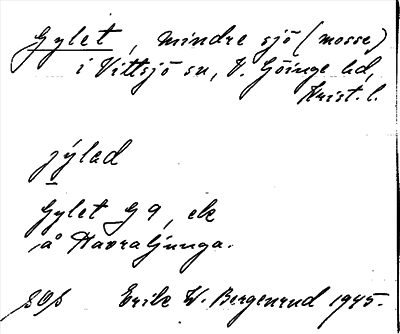 Gylet, mindre sjö (mosse)
i Vittsjö sn, V. Göinge hd,
Krist. l.
jýlad
Gylet G 9, ek
å Havraljunga.
Erik W. Bergenrud 1945.